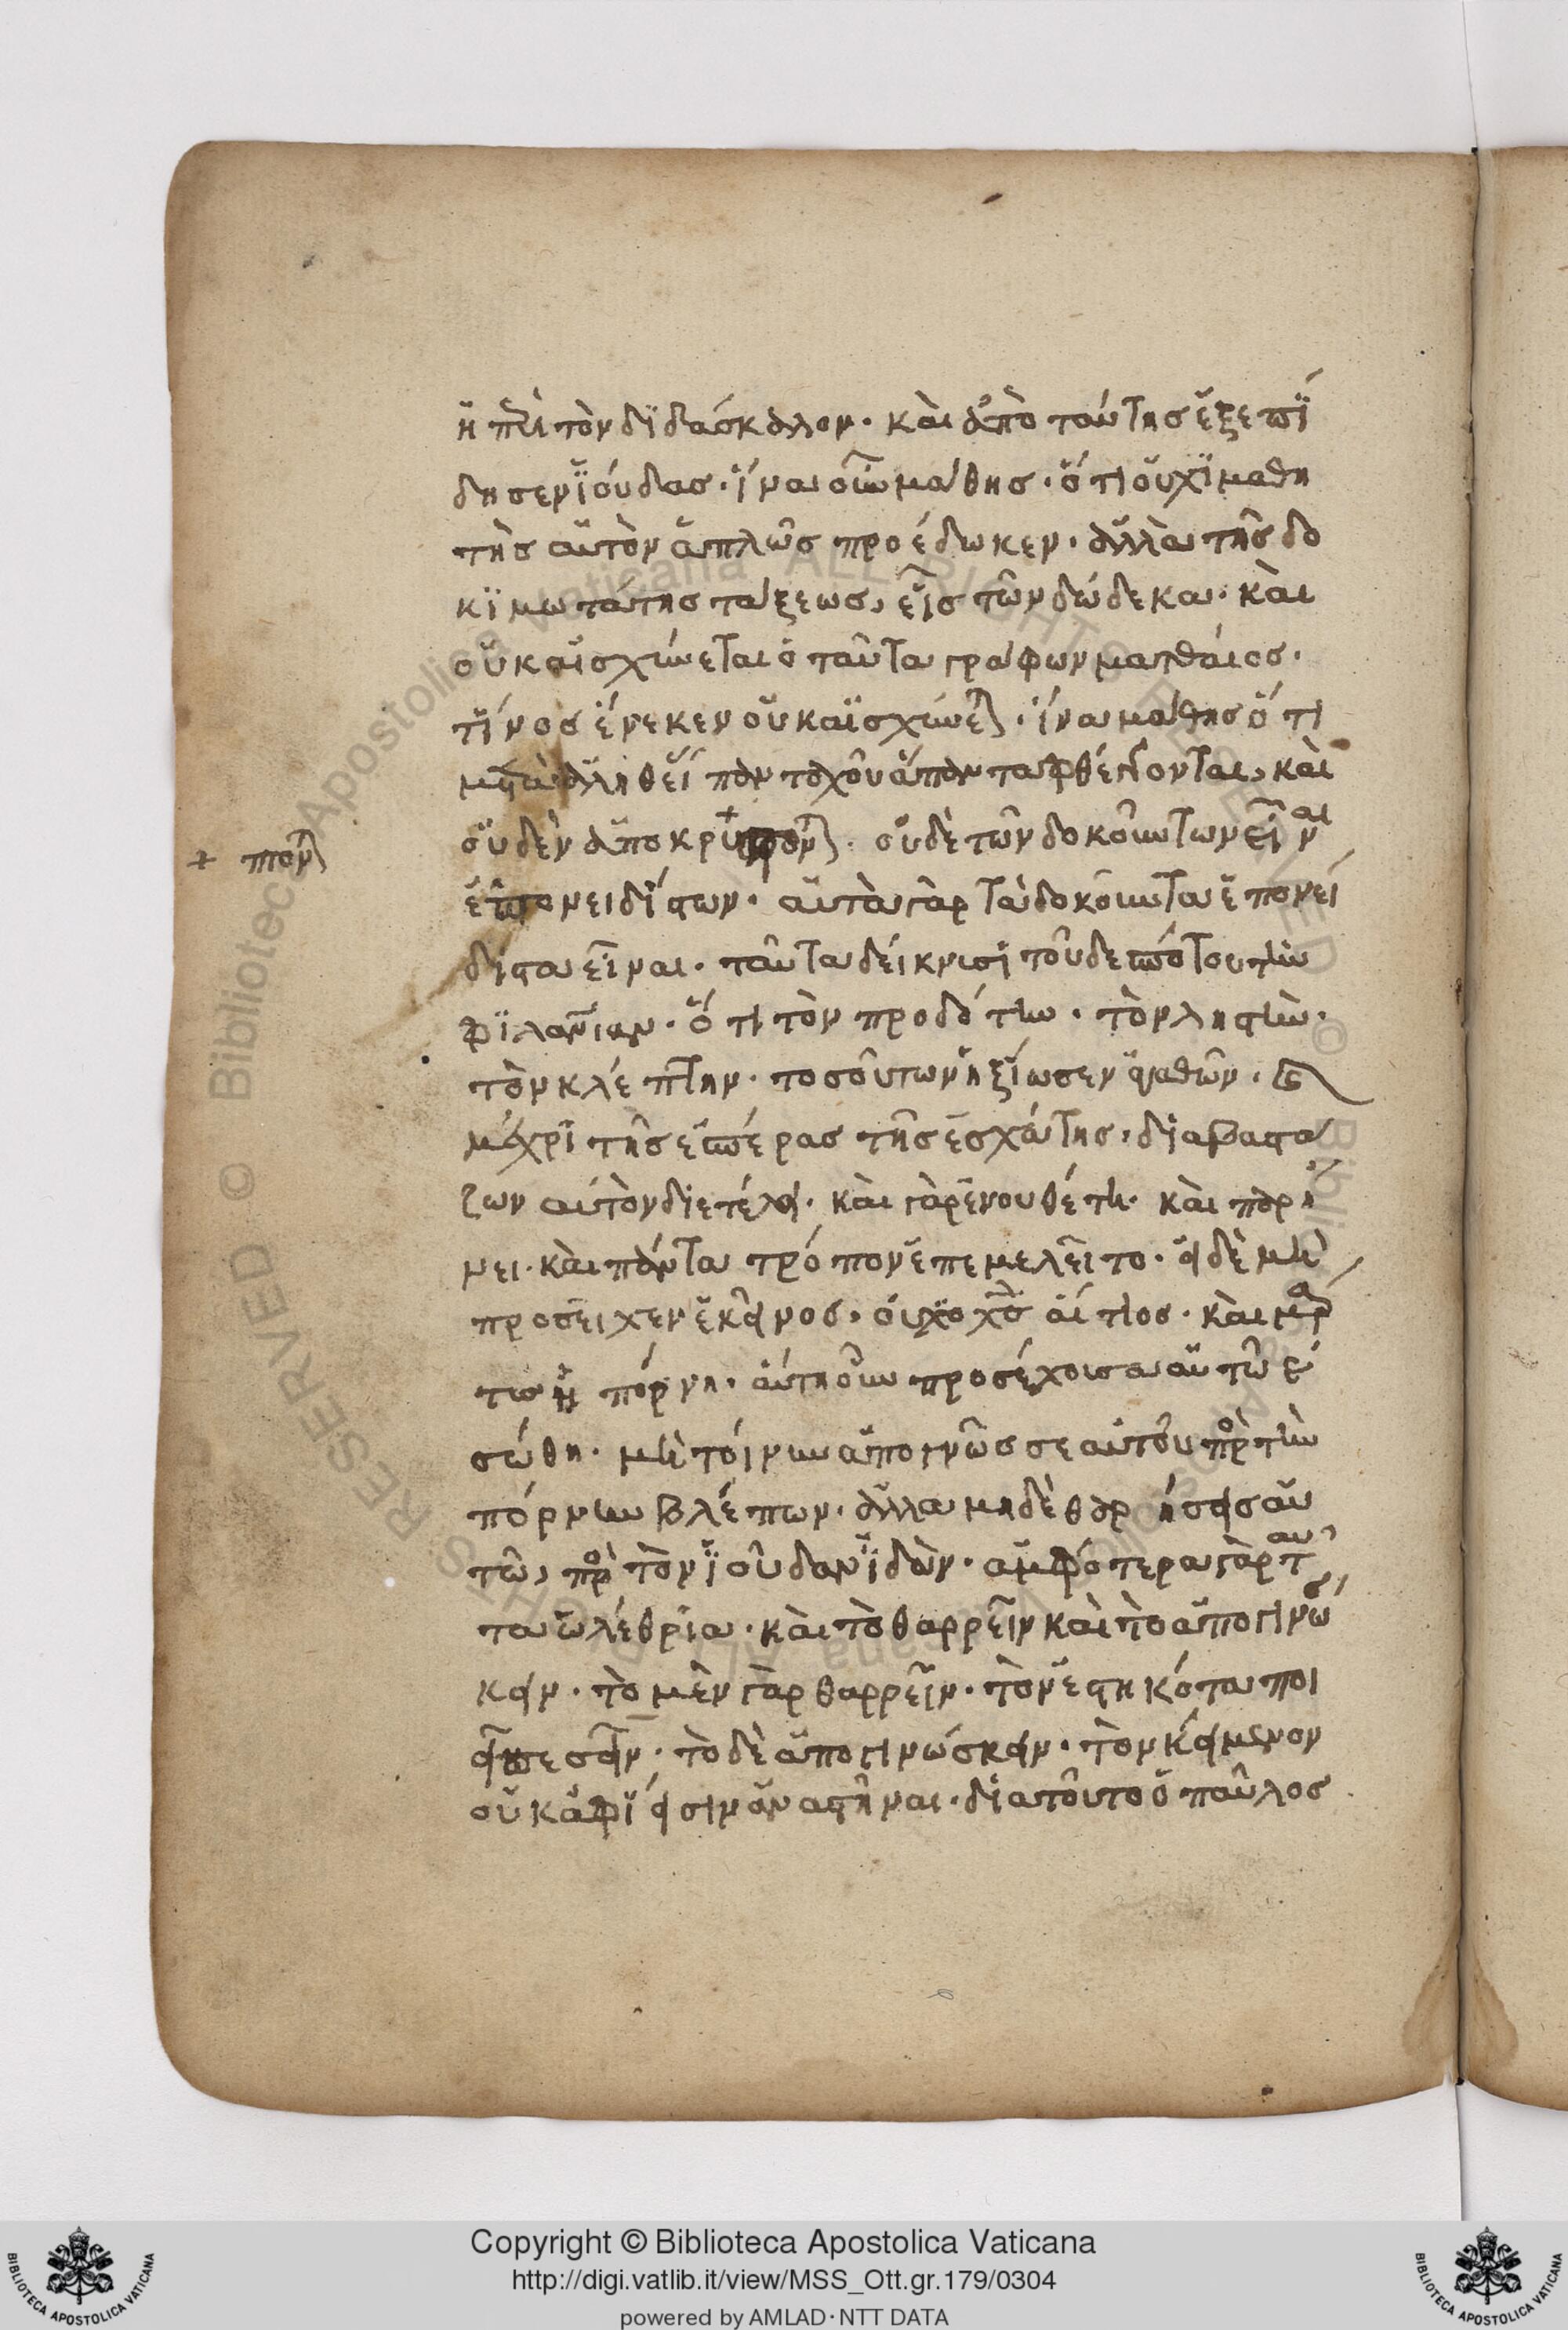 ἢ περὶ τὸν διδάσκαλον. καὶ ἀπὸ ταύτης ἐξεπή
δησεν ἰούδας. ἵνα οὖν μάθης. ὅτι οὐχὶ μαθη
τὴς αὐτὸν ἁπλῶς προέδωκεν. ἀλλὰ τῆς δο
κιμωτάτης τάξεως, εἷς τῶν δώδεκα. καὶ
οὐκ αἰσχύνεται ὁ ταῦτα γράφων ματθαίος.
τίνος ἕνεκεν οὐκ αἰσχύνεται. ἵνα μάθης ὅτι
μετὰ ἀληθεί πανταχοῦ ἅπαντα φθέγγονται, καὶ
οὐδὲν ἀποκρύπτονται. οὐδὲ τῶν δοκούντων εἶναι
+ πτονται
ἐπονειδίστων. αὐτὰ γὰρ τὰ δοκοῦντα ἐπονεί
διστα εἶναι. ταῦτα δείκνυσι τοῦ δεσπότου τὴν
φιλανίαν. ὅτι τὸν προδότην. τὸν ληστὴν.
τὸν κλέπτην. τοσούτων ἠξίωσεν ἀγαθῶν. καὶ
μέχρι τῆς ἑσπέρας τῆς ἐσχάτης, διαβαστά
ζων αὐτὸν διετέλει. καὶ γὰρ ἐνουθέτει. καὶ παρή
νει. καὶ πάντα τρόπον ἐπεμελεῖτο. εἰ δὲ μὴ
προσεῖχεν ἐκεῖνος. οὐχ ὁ χς αἴτιος. καὶ μαρ
τυς ἡ πόρνη. αὕτη οὖν προσέχουσα αὐτῶ ἐ
σώθη. μὴ τοίνυν ἀπογνῶς σεαυτοῦ πρὸς τὴν
πόρνην βλέπων. ἀλλὰ μηδὲ θαρρήσεις αὖ
τῶ, πρὸς τὸν ἰούδαν ἰδὼν. ἀμφότερα γὰρ ταῦ
τα ὠλέθρια. καὶ τὸ θαρρεῖν καὶ τὸ ἀπογινώσ
κειν. τὸ μὲν γὰρ θαρρεῖν. τὸν ἑστηκότα ποι
εῖ πεσεῖν. τὸ δὲ ἀπογινώσκειν. τὸν κείμενον
οὐκ ἀφίησιν ἀναστῆναι. διὰ τοῦτο ὁ παῦλος
Copyright © Biblioteca Apostolica Vaticana
http://digi.vatlib.it/view/MSS_Ott.gr.179/0304
powered by AMLAD · NTT DATA